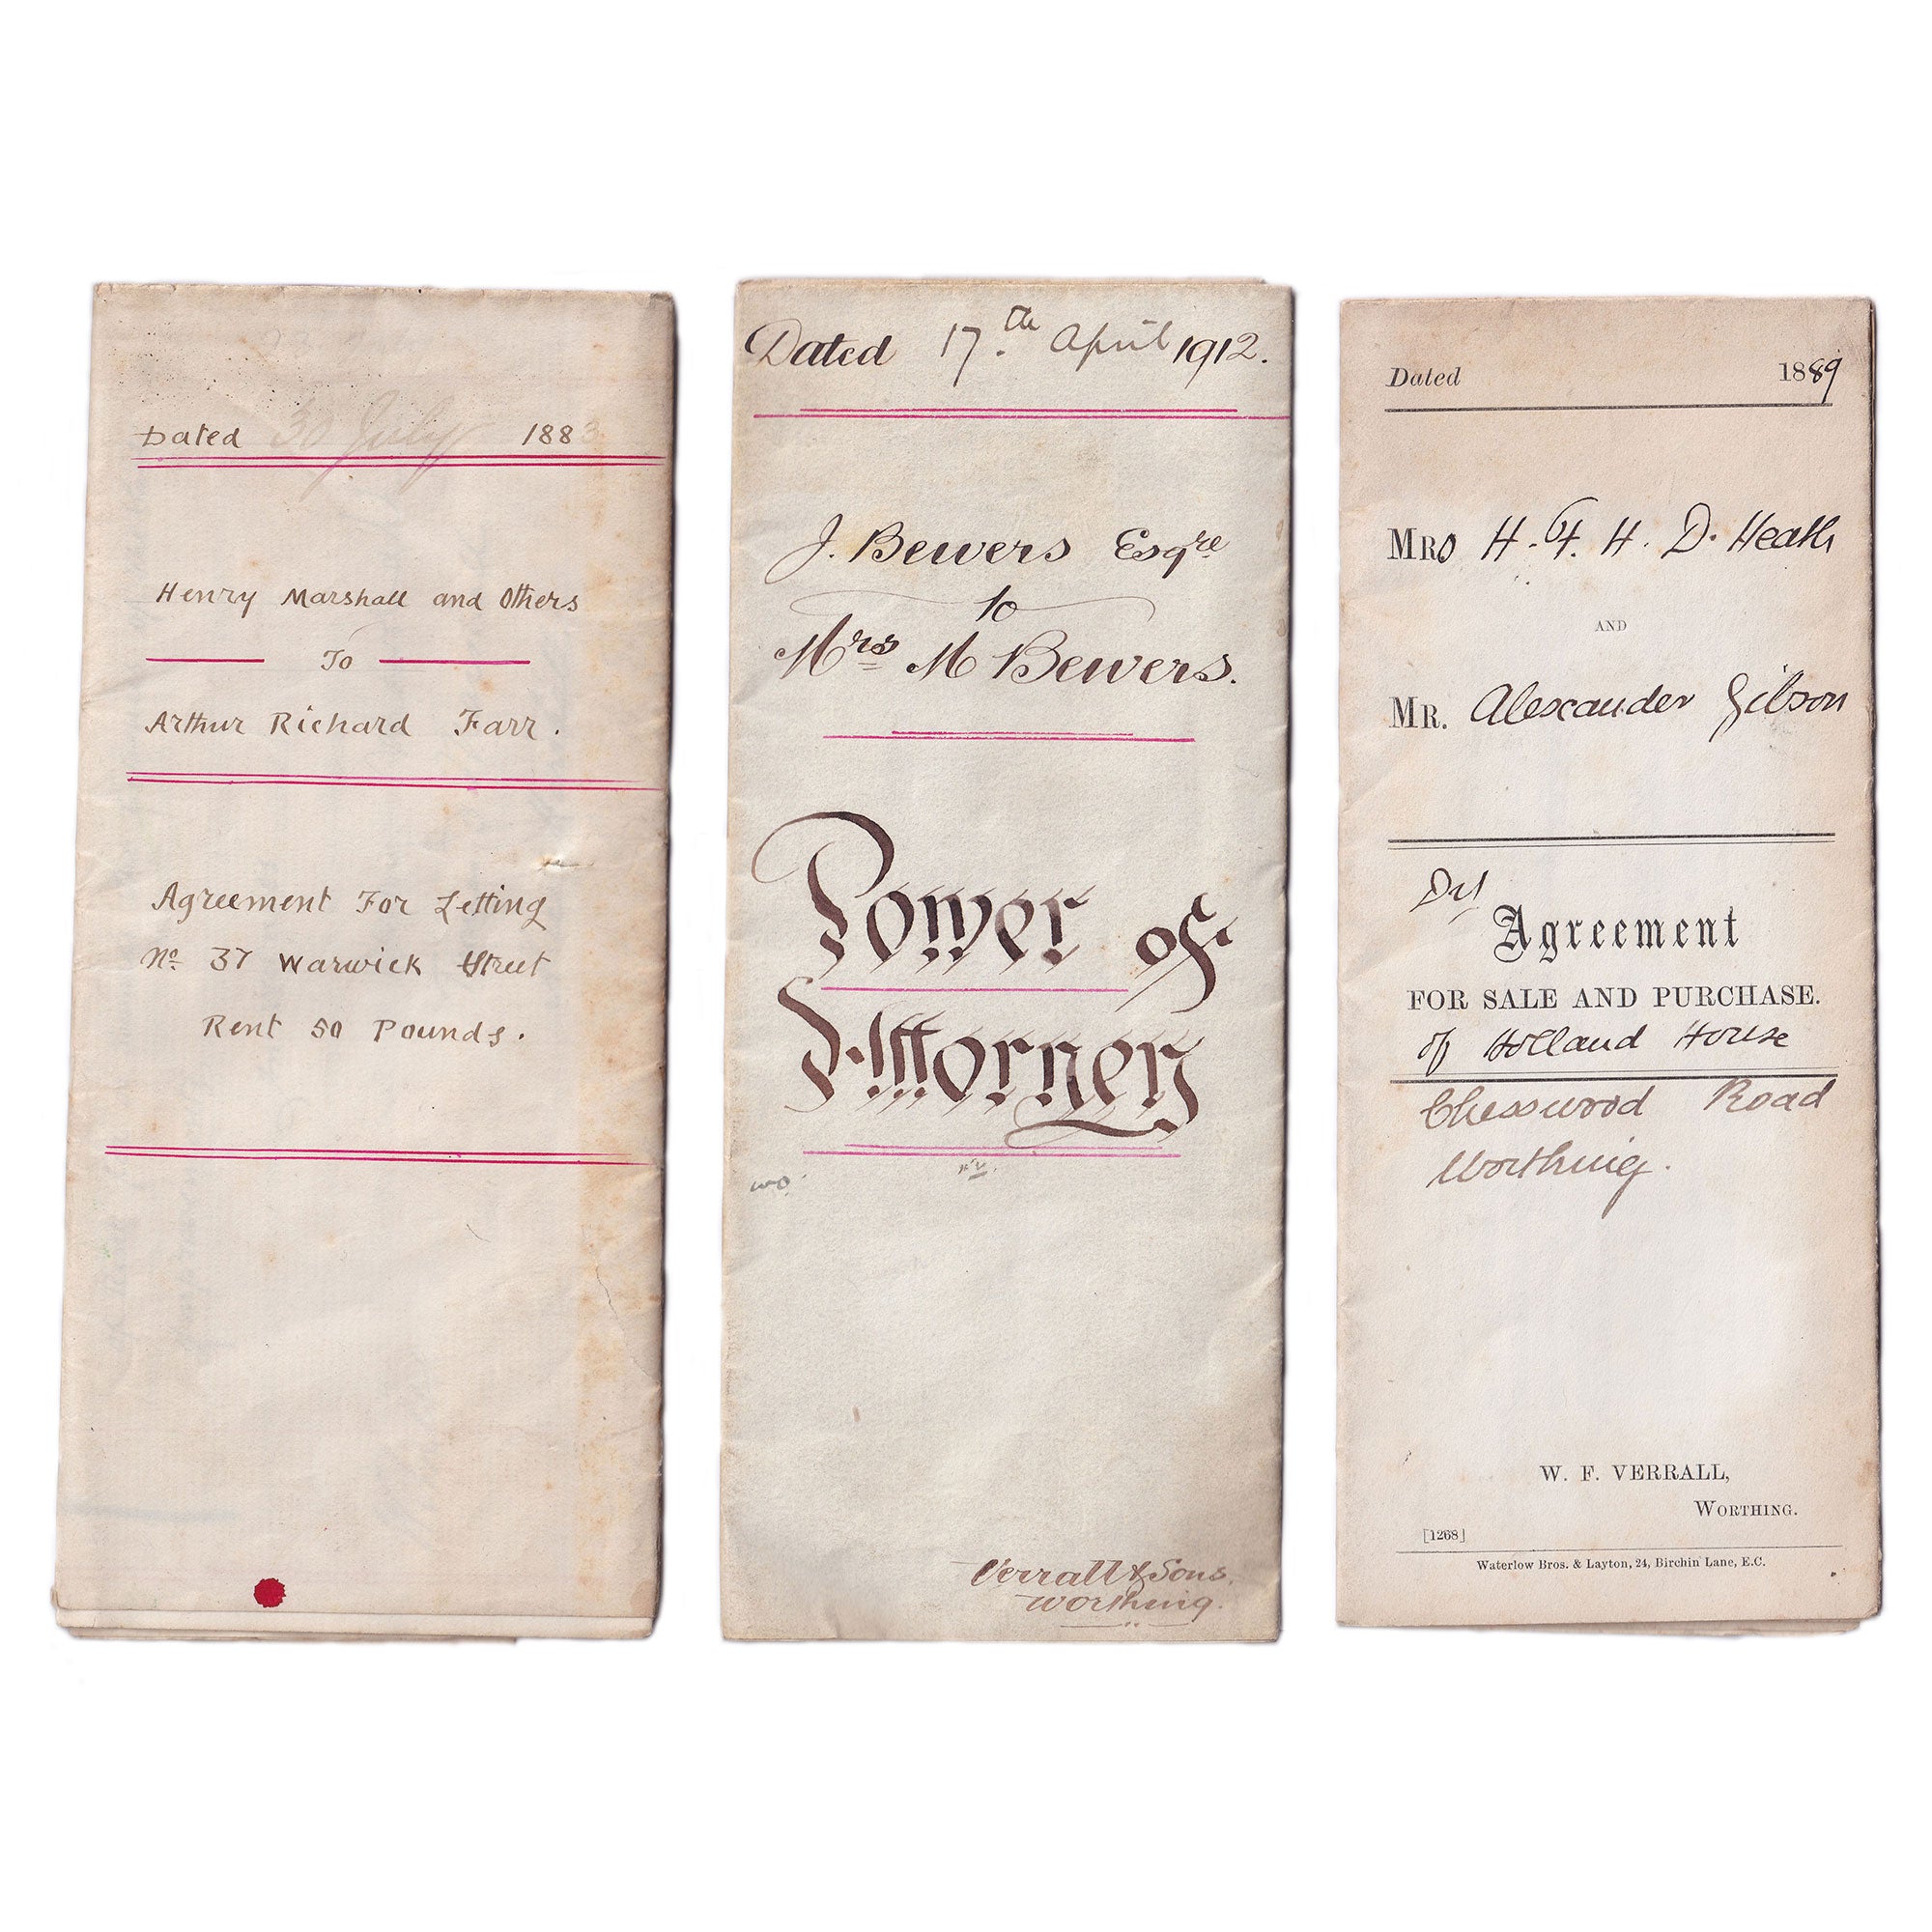 Dated 30 July 1883
Henry Marshall and Others
To
Arthur Richard Farr.
Agreement For Letting
No. 37 Warwick Street
Rent 50 Pounds.
Dated 17.th April 1912.
J. Bewers Esqre
to
Mrs M Bewers.
Power of
Attorney
Verrall & Sons.
Worthing.
Dated 1889
MRs H. H. D. Heath
AND
MR. Alexander Gibson
Dft
Agreement
FOR SALE AND PURCHASE.
of Holland House
Chesswood Road
Worthing.
W. F. VERRALL,
WORTHING.
[1268]
Waterlow Bros. & Layton, 24, Birchin Lane, E.C.